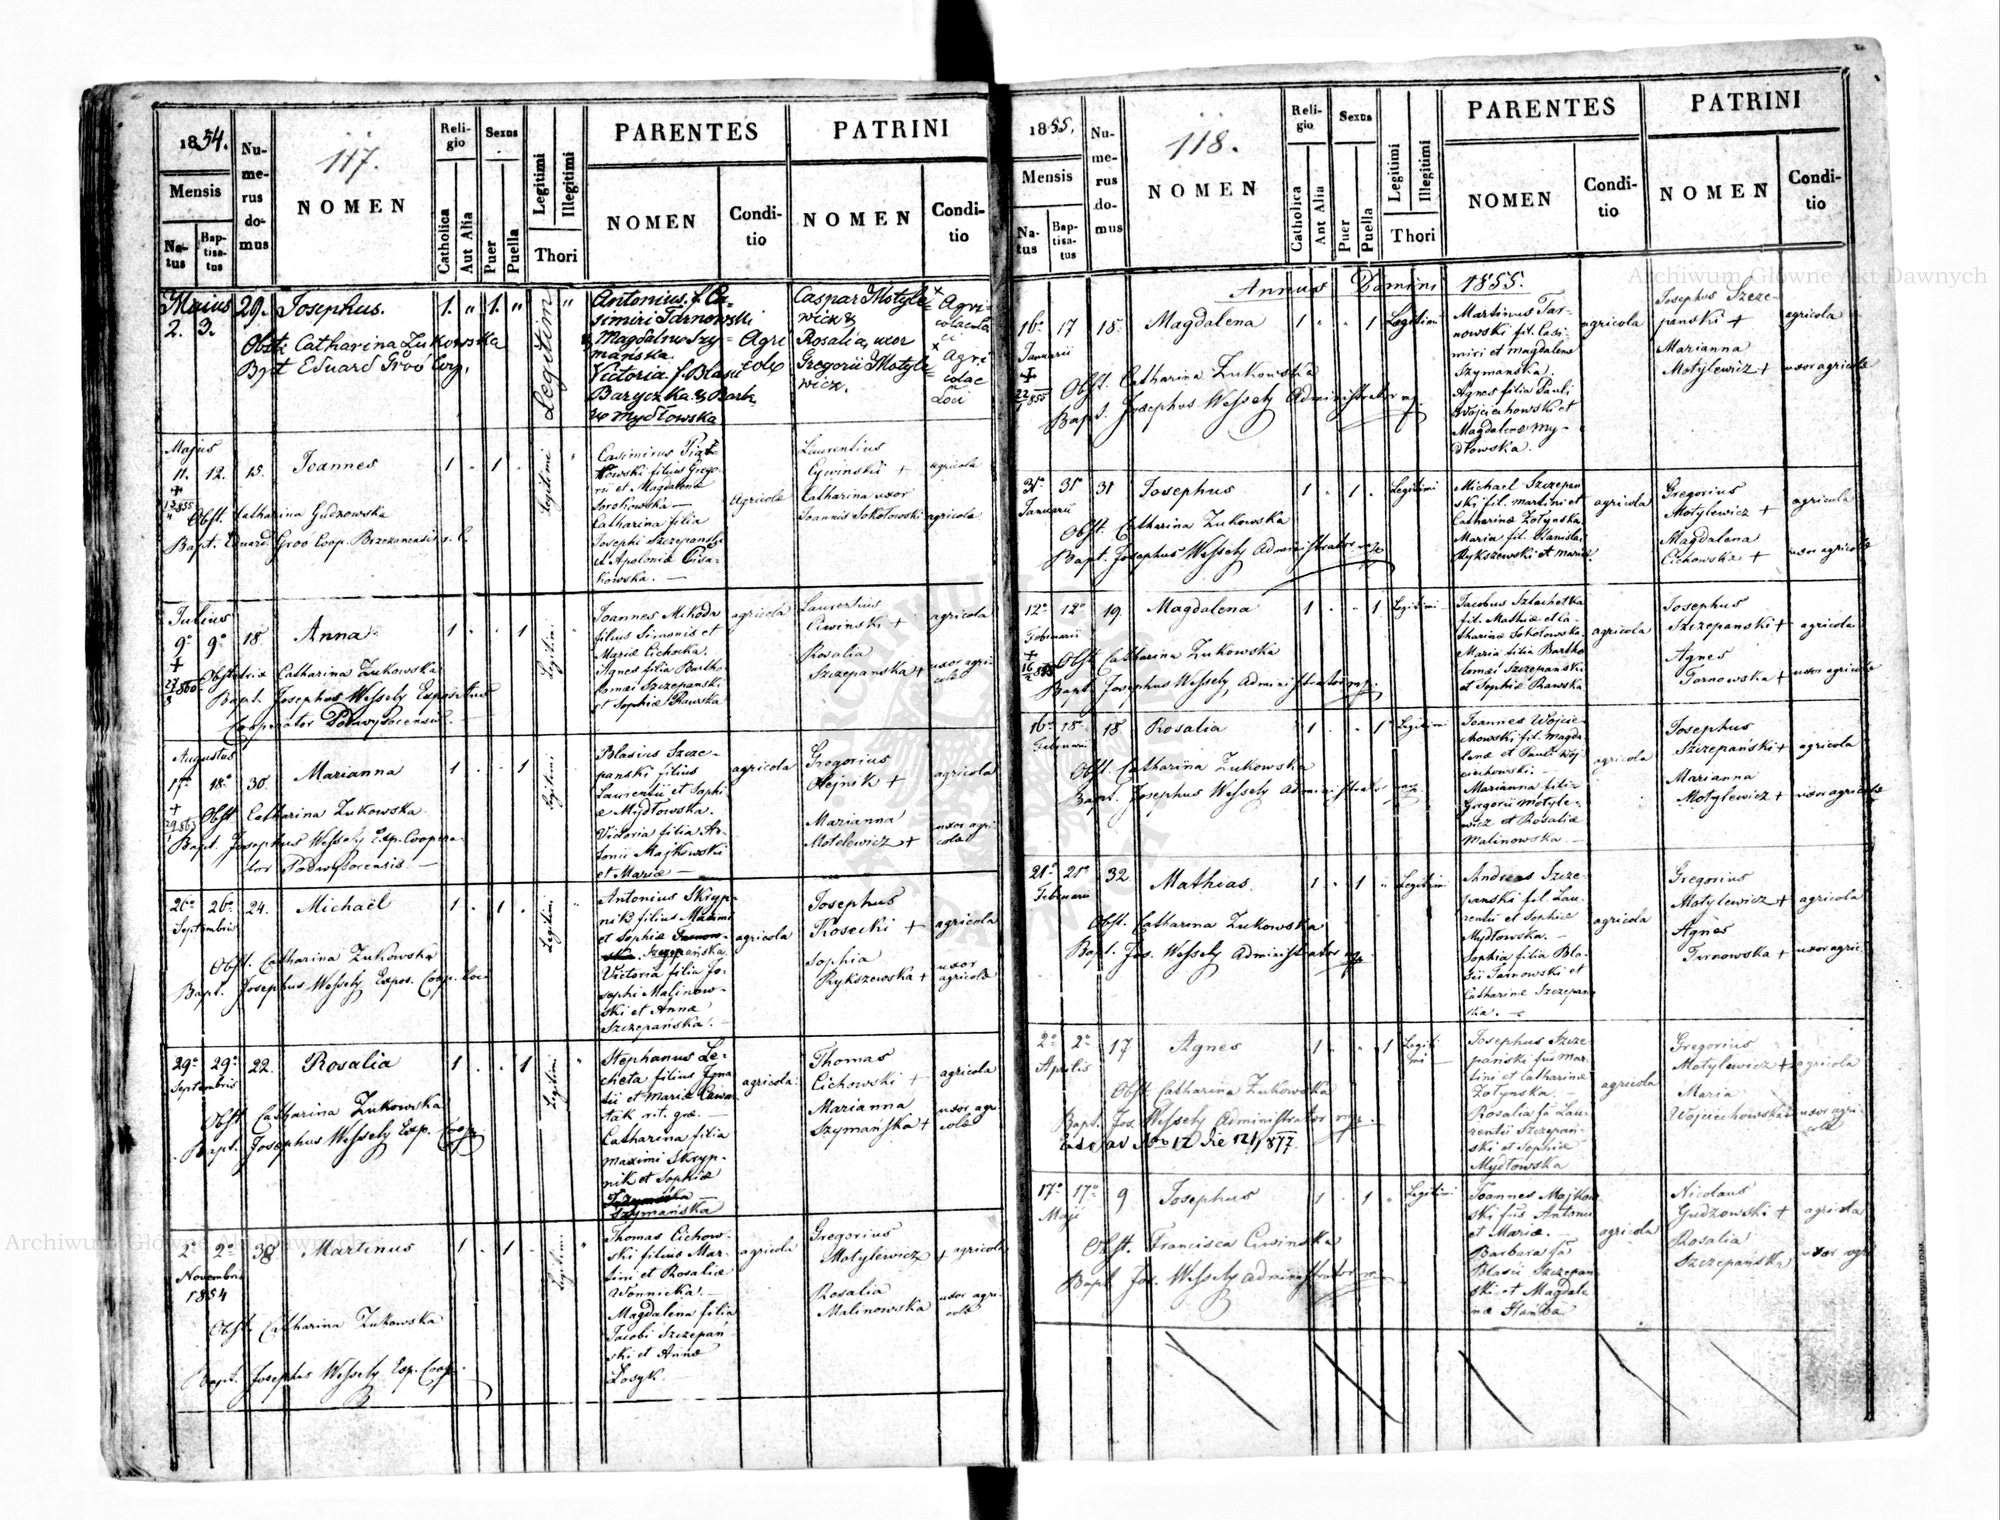 1854.
Mensis
Na-
tus
Bap-
tisa-
tus
Nu-
me-
rus
do-
mus
117.
NOMEN
Reli-
gio
Catholica
Aut Alia
Sexus
Puer
Puella
Legitimi
Illegitimi
Thori
PARENTES
NOMEN
Condi-
tio
PATRINI
NOMEN
Condi-
tio
Maius
2. 3.
29. Josephus. 1. " 1. "
Obst: Catharina Zukowska
Bpt Eduard Groó Coop.
Legitim
Antonius f. Ca-
simiri Tarnowski
& Magdalenæ Szy-
mańska.
Victoria f. Blasii
Baryczka & Barb.
Mydłowska
Agri
colæ
Caspar Motyle-
wicz &
Rosalia, uxor
Gregorii Motyle-
wicz.
Agri-
cola
Agri
colae
Loci
Majus
11. 12. 15. Joannes 1 . 1 .
Obst. Catharina Gudzowska
Bapt. Eduard. Groo Coop. Brzezanensis r. l.
Legitimi
Casimirus Piąt-
kowski filius Grego-
rii et Magdalenæ
Sorohowska —
Catharina filia
Josephi Szczepanski
et Apoloniæ Cisa-
kowska. —
Agricola
Laurentius
Cywinski +
Catharina uxor
Joannis Sokołowski
agricola
agricola
Julius
9º 9º 18. Anna 1 . . 1
Obstetrix Catharina Zukowska
Bapt. Josephus Wessely Expositus
Cooperator Podwysocensis. —
Legitimi
Joannes Mikoda
filius Simonis et
Mariæ Cichocka.
Agnes filia Bartho-
lomæi Szczepanski
et Sophiæ Rawska
agricola
Laurentius
Ciwinski +
Rosalia
Szczepanska +
agricola
uxor agri-
colæ
Augustus
17º 18º 30. Marianna 1 . . 1
Obst Catharina Zukowska
Bapt. Josephus Wessely Exp. Coopera-
tor Podwysocensis —
Legitimi
Blasius Szcze-
panski filius
Laurentii et Sophi-
æ Mydłowska.
Victoria filia An-
tonii Majkowski
et Mariæ —
agricola
Gregorius
Olejnik +
Marianna
Motelewicz +
agricola
uxor agri-
colæ
26º 26º 24. Michaël 1 . 1 .
Septembris
Obst. Catharina Zukowska
Bapt. Josephus Wessely Expos. Coop. loci
Legitimi
Antonius Skryp-
nik filius Maximi
et Sophiæ
Szczepańska.
Victoria filia Jo-
sephi Malinow-
ski et Annæ
Szczepańska. —
agricola
Josephus
Kosecki +
Sophia
Rykszewska +
agricola
uxor
agricolæ
29º 29º 22. Rosalia 1 . . 1
Septembris
Obst Catharina Zukowska
Bapt. Josephus Wessely Exp. Coop.
Legitimi
Stephanus Le-
cheta filius Igna
tii et Mariæ
rit. græ. —
Catharina filia
maximi Skryp-
nik et Sophiæ
Szymańska
agricola.
Thomas
Cichowski +
Marianna
Szymańska +
agricola
uxor agri-
colæ
2º 2º 38. Martinus 1 . 1 .
Novembris
1854
Obst. Catharina Zukowska
Bapt. Josephus Wessely Exp. Coop.
Legitimi
Thomas Cichow-
ski filius Mar-
tini et Rosaliæ
Wonnicka. —
Magdalena filia
Jacobi Szczepań-
ski et Annæ
Łosyk. —
agricola
Gregorius
Motylewicz +
Rosalia
Malinowska
agricola
uxor agri-
colæ
1855.
Mensis
Na-
tus
Bap-
tisa-
tus
Nu-
me-
rus
do-
mus
118.
NOMEN
Reli-
gio
Catholica
Aut Alia
Sexus
Puer
Puella
Legitimi
Illegitimi
Thori
PARENTES
NOMEN
Condi-
tio
PATRINI
NOMEN
Condi-
tio
Annus Domini 1855.
16º 17 15. Magdalena 1 . . 1 Legitimi
Januarii
Obst. Catharina Zukowska
Bapt. Josephus Wessely Administrator mp.
Martinus Tar-
nowski fil. Casi-
miri et Magdalenæ
Szymanska.
Agnes filia Pauli
Wojciechowski et
Magdalenæ My-
dłowska.
agricola
Josephus Szcze-
panski +
Marianna
Motylewicz +
agricola
uxor agricolæ
31º 31º 31 Josephus 1 . 1 . Legitimi
Januarii
Obst. Catharina Zukowska
Bapt. Josephus Wessely Administrator mp
Michaël Szczepan
ski fil. Martini et
Catharinæ Zołynska.
Maria fil. Stanislai
Rykszewski et Mariæ
agricola
Gregorius
Motylewicz +
Magdalena
Cichowska +
agricola
uxor agricolæ
12º 12º 19. Magdalena 1 . . 1 Legitimi
Februarii
Obst Catharina Zukowska
Bapt. Josephus Wessely, Administrator mp.
Jacobus Szlachetka
fil. Mathiæ et Ca-
tharinæ Sokołowska.
Maria filia Bartho
lomæi Szczepanski
et Sophiæ Rawska
agricola
Josephus
Szczepanski +
Agnes
Tarnowska +
agricola
uxor agricolæ
16º 18º 18 Rosalia 1 . . 1 Legitimi
Februarii
Obst. Catharina Zukowska
Bapt. Josephus Wessely Administrator mp
Joannes Wojcie-
chowski fil. Magda
lenæ et Pauli Woj-
ciechowski. —
Marianna filia
Gregorii Motyle-
wicz et Rosaliæ
Malinowska —
agricola
Josephus
Szczepański +
Marianna
Motylewicz +
agricola
uxor agricolæ
21º 21º 32. Mathias. 1 . 1 . Legitimi
Februarii
Obst. Catharina Zukowska
Bapt. Jos. Wessely Administrator mp.
Andreas Szcze-
panski fil. Lau-
rentii et Sophiæ
Mydłowska. —
Sophia filia Bla-
sii Tarnowski et
Catharinæ Szczepan
ska. —
agricola
Gregorius
Motylewicz +
Agnes
Tarnowska +
agricola
uxor agric-
2º 2º 17 Agnes 1 . . 1 Legiti
mi
Aprilis
Obst. Catharina Zukowska
Bapt. Jos. Wessely Administrator mp.
Josephus Szcze
pański fius Mar-
tini et Catharinæ
Zołynska.
Rosalia fa Lau-
rentii Szczepań-
ski et Sophiæ
Mydłowska
agricola
Gregorius
Motylewicz +
Maria
Wojciechowska
agricola
uxor agri-
colæ
17º 17º 9 Josephus 1 . 1 . Legitimi
Maji
Obst. Francisca Ciwinska
Bapt Jos. Wessely Administrator mp
Joannes Majkow
ski fius Antonii
et Mariæ.
Barbara fa
Blasii Szczepan
ski et Magdale
næ Hańba
agricola
Nicolaus
Gudzowski +
Rosalia
Szczepańska
agricola
uxor agri
Archiwum Główne Akt Dawnych
Archiwum Główne Akt Dawnych